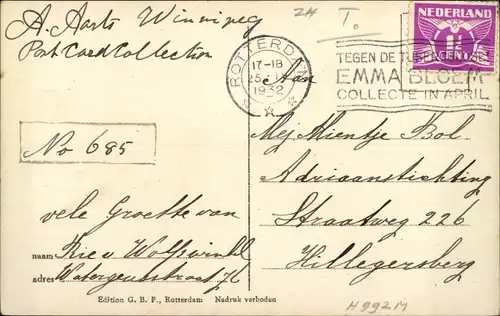 A. Aarts Winnipeg
Post Card Collection
ZA
T.
NEDERLAND
1½
ROTTERDAM
17-18
1932
TEGEN DE TUBERCULOSE
EMMA BLOEM
COLLECTE IN APRIL
Aan
No 685
Mej Mientje Bol
Adriaanstichting
Straatweg 226
Hillegersberg
vele Groette van
naam Rie v Wolfswinkel
adres Watergeusstraat 76
Edition G. B. F., Rotterdam Nadruk verboden
H992M